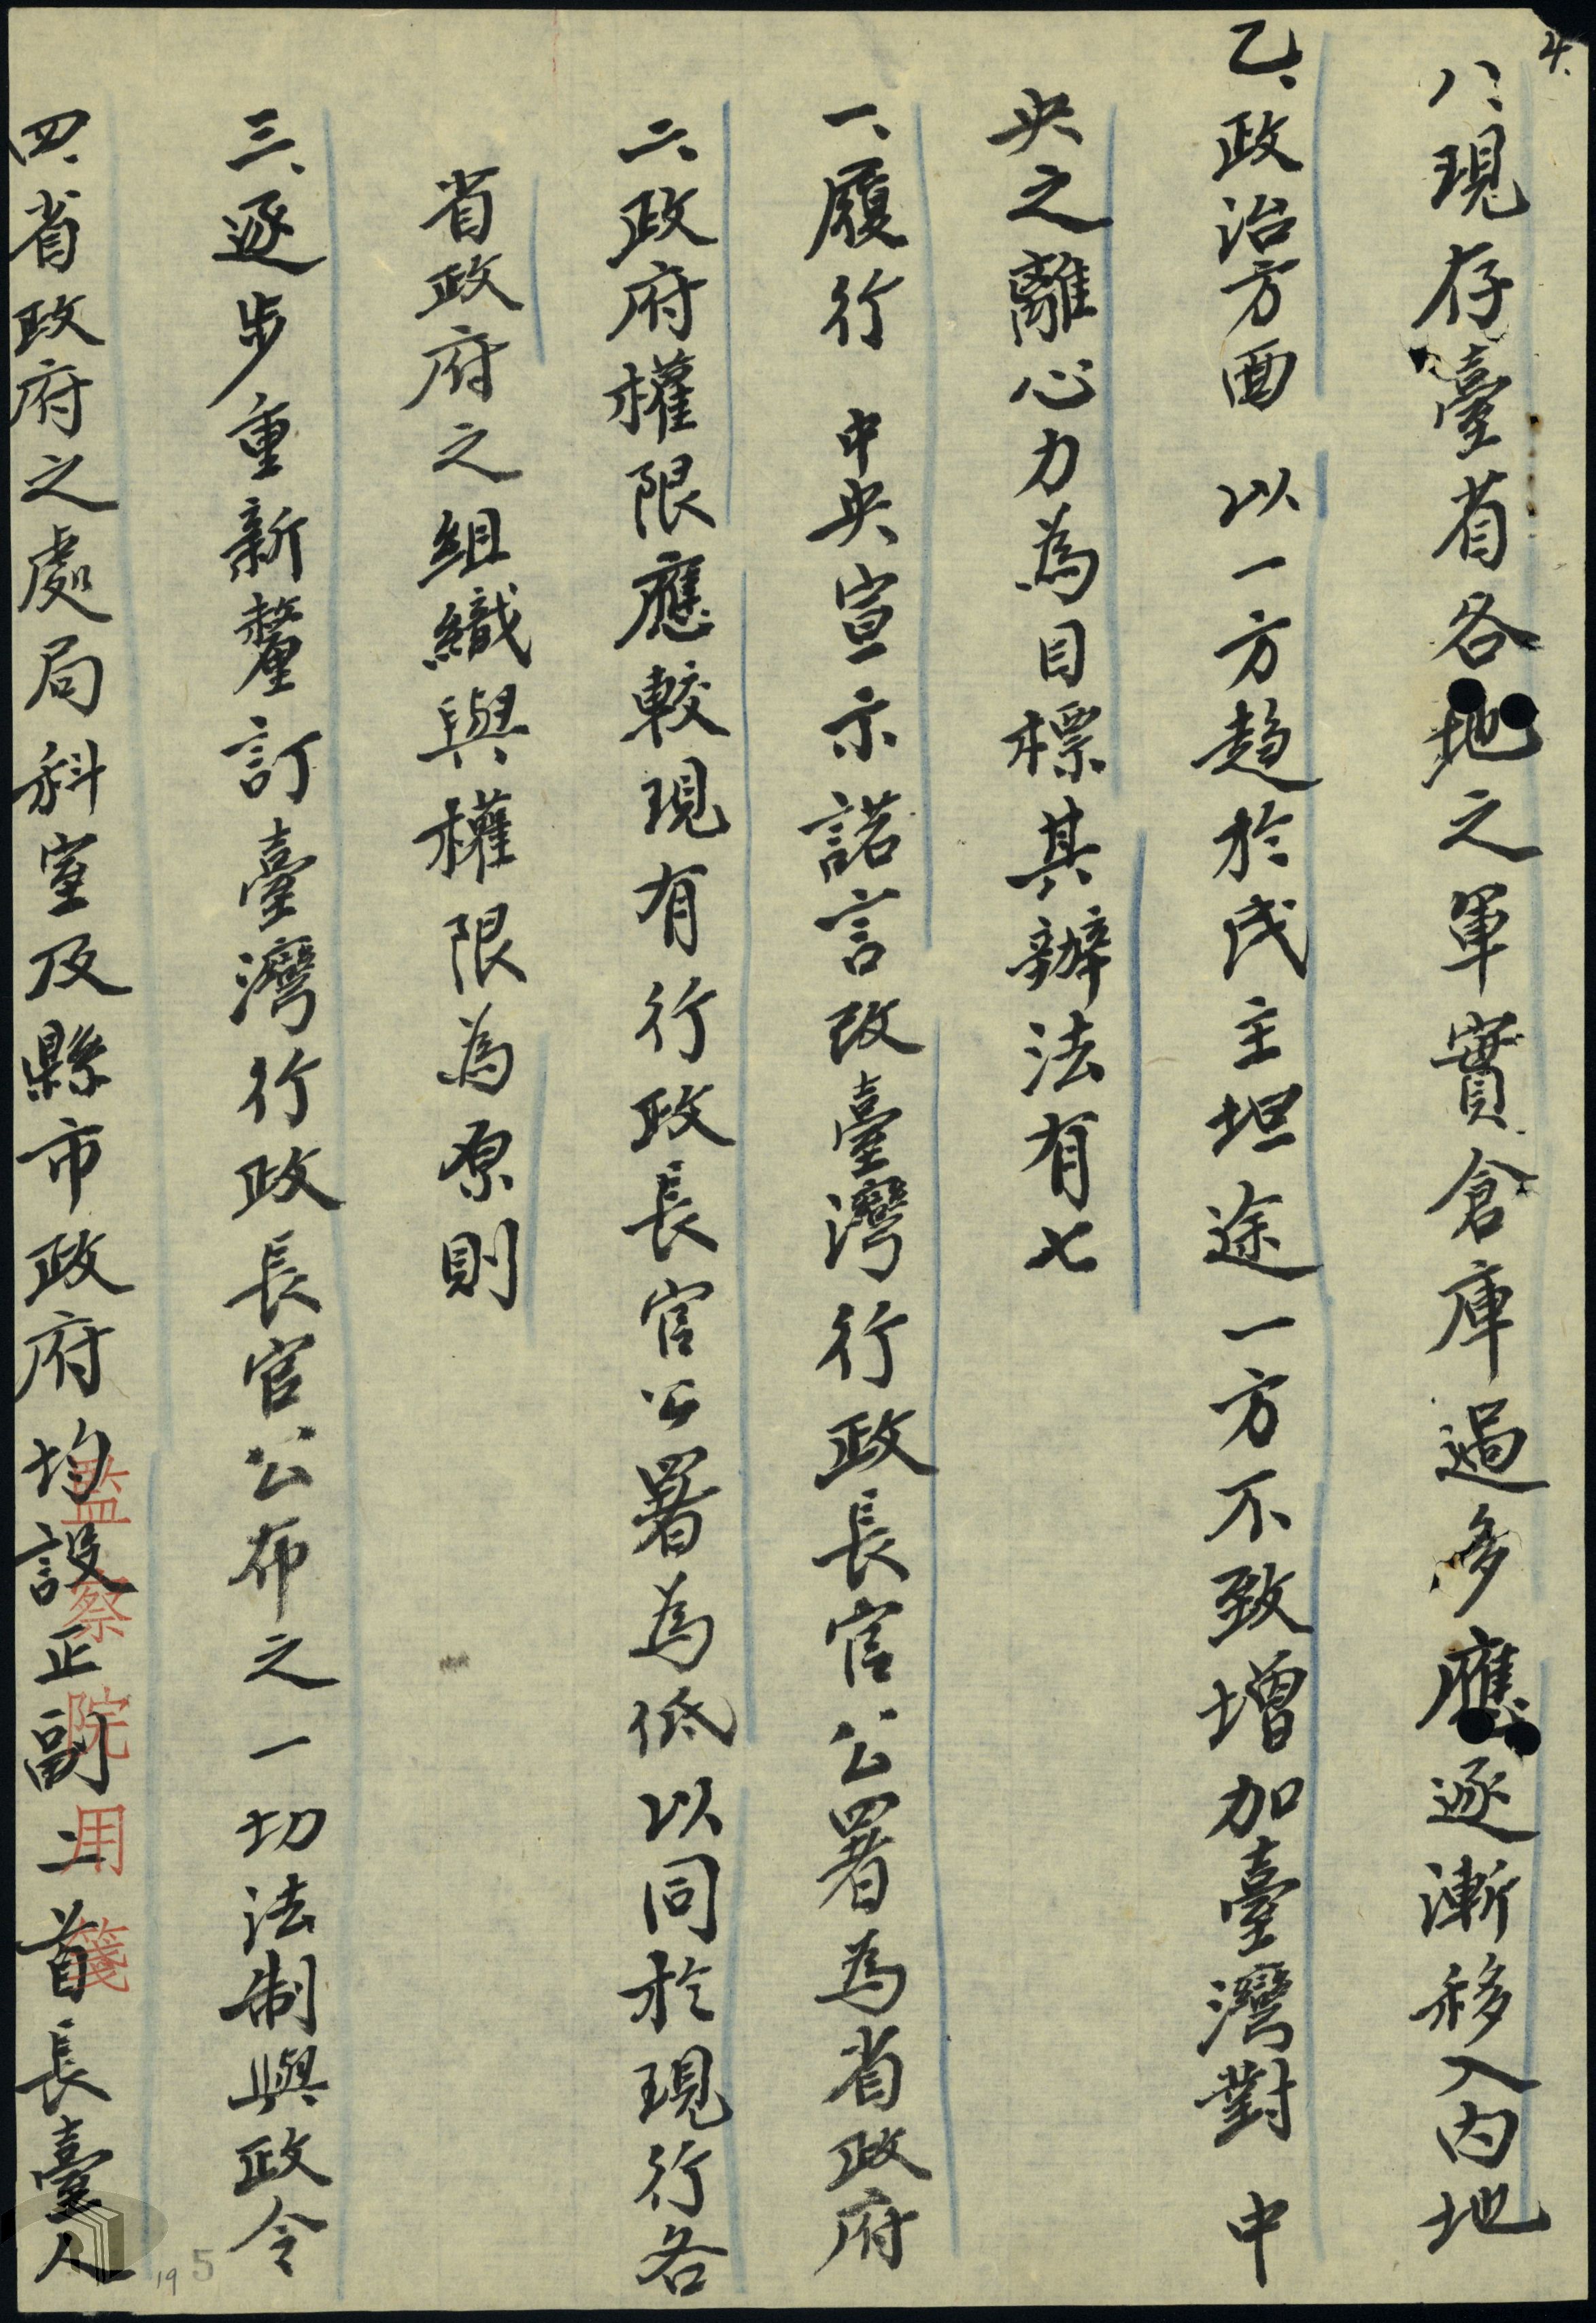 4.
八、現存臺省各地之軍實倉庫過多應逐漸移入内地
乙、政治方面 以一方趋於民主坦途一方不致增加臺灣對 中
央之離心力為目標其辦法有七
一、履行 中央宣示諾言改臺灣行政長官公署為省政府
二、政府權限應較現有行政長官公署為低以同於現行各
省政府之組織與權限為原則
三、逐步重新釐訂臺灣行政長官公布之一切法制與政令
四、省政府之處局科室及縣市政府均設正副二首長臺人
監察院用箋
19
5